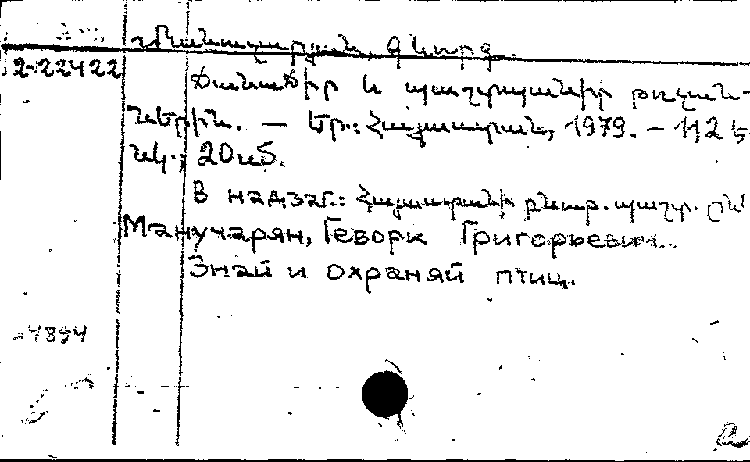 Մանուչարյան, Գևորգ.
2-22422
Ճանաչիր և պաշտպանիր թռչուն-
ներին. — Եր.: Հայաստան, 1979. — 112 է
նկ.; 20սմ.
В надзаг.: Հայաստանի բնութ. պաշտ. ըն
Манучарян, Геворк Григорьевич.
Знай и охраняй птиц.